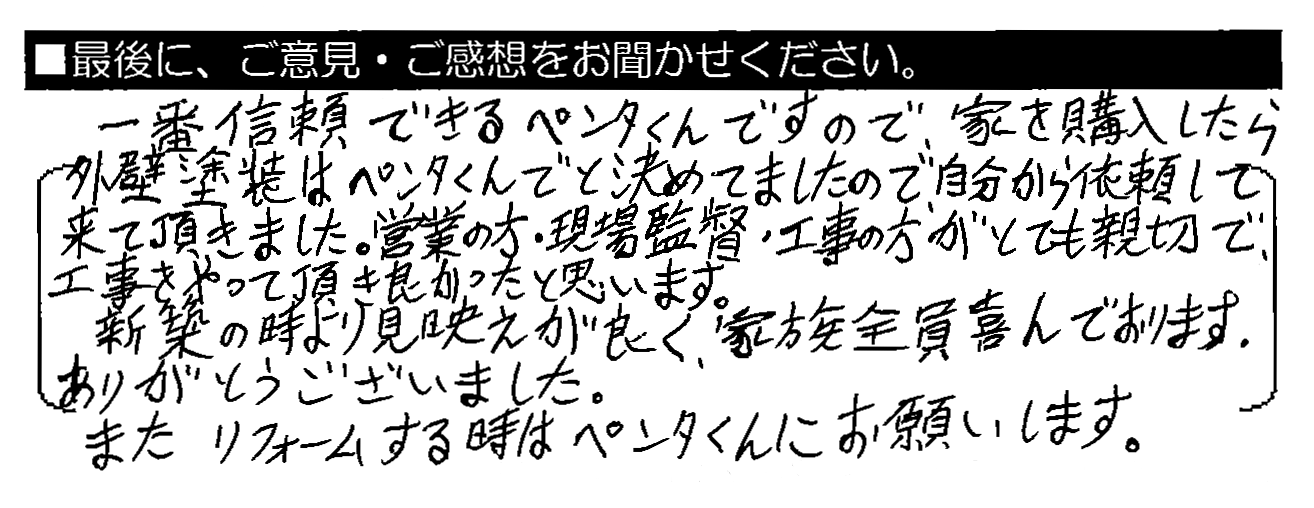 ■最後に、ご意見・ご感想をお聞かせください。
一番信頼できるペンタくんですので、家を購入したら
外壁塗装はペンタくんでと決めてましたので自分から依頼して
来て頂きました。営業の方・現場監督・工事の方がとても親切で、
工事をやって頂き良かったと思います。
新築の時より見映えが良く、家族全員喜んでおります。
ありがとうございました。
また リフォームする時はペンタくんにお願いします。